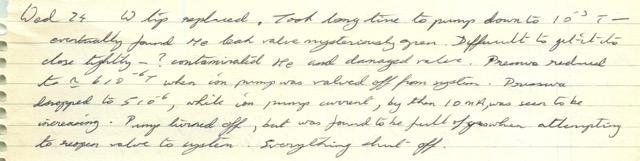 Wed 24 W tip replaced. Took long time to pump down to 10⁻³ T —
eventually found He leak valve mysteriously open. Difficult to get it to
close tightly – ? contaminated He and damaged valve. Pressure reduced
to ≈ 6 10⁻⁶T when ion pump was valved off from system. Pressure
dropped to 5 10⁻⁶, while ion pump current, by then 10 mA, was seen to be
increasing. Pump turned off, but was found to be full of gas when attempting
to reopen valve to system. Everything shut off.